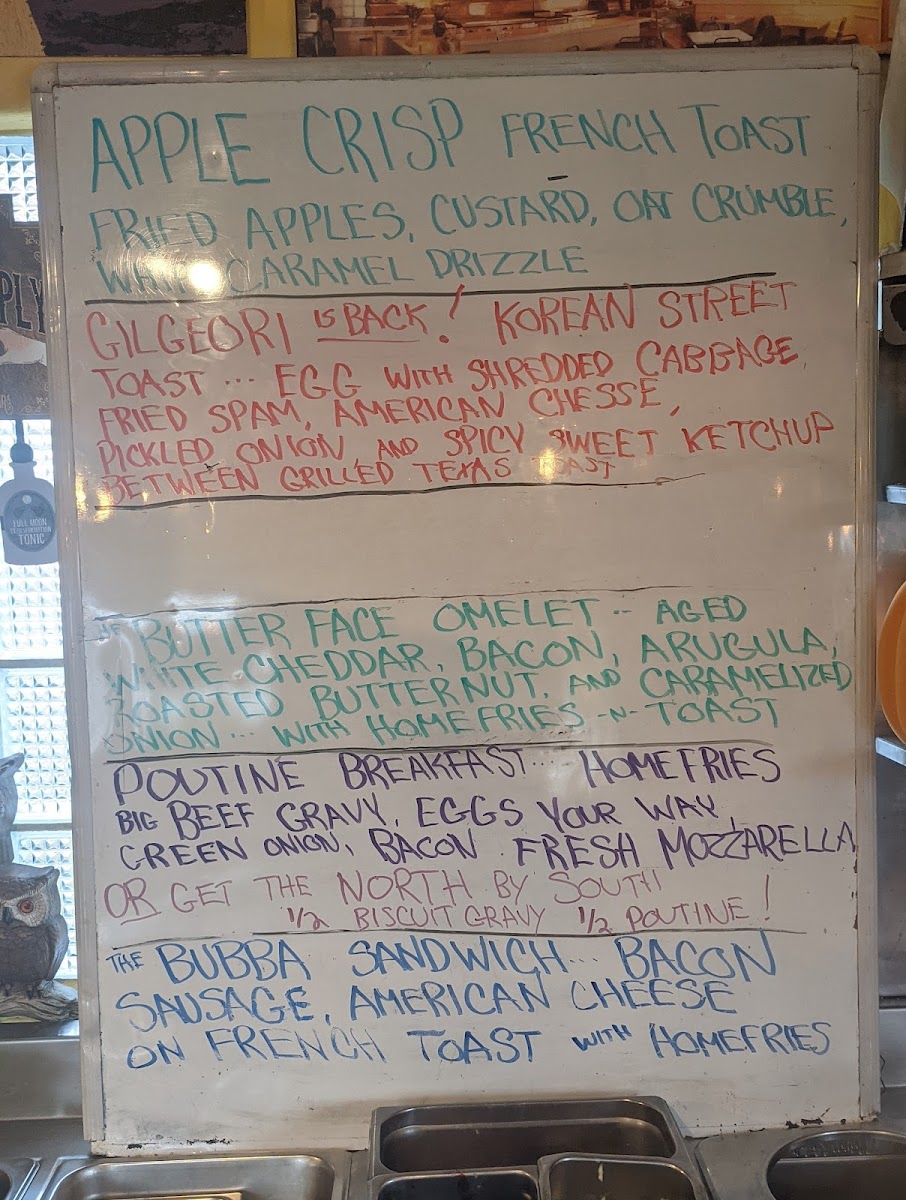 APPLE CRISP FRENCH TOAST
FRIED APPLES, CUSTARD, OAT CRUMBLE,
CARAMEL DRIZZLE
GILGEORI IS BACK! KOREAN STREET
TOAST ... EGG WITH SHREDDED CABBAGE,
FRIED SPAM, AMERICAN CHESSE,
PICKLED ONION, AND SPICY SWEET KETCHUP
BETWEEN GRILLED TEXAS TOAST
BUTTER FACE OMELET -- AGED
WHITE CHEDDAR, BACON, ARUGULA,
ROASTED BUTTERNUT, AND CARAMELIZED
ONION ... WITH HOMEFRIES -N- TOAST
POUTINE BREAKFAST ... HOMEFRIES
BIG BEEF GRAVY, EGGS YOUR WAY,
GREEN ONION, BACON FRESH MOZZARELLA
OR GET THE NORTH BY SOUTH
1/2 BISCUIT GRAVY 1/2 POUTINE!
THE BUBBA SANDWICH... BACON
SAUSAGE, AMERICAN CHEESE
ON FRENCH TOAST WITH HOMEFRIES
PLY
FULL MOON
TONIC